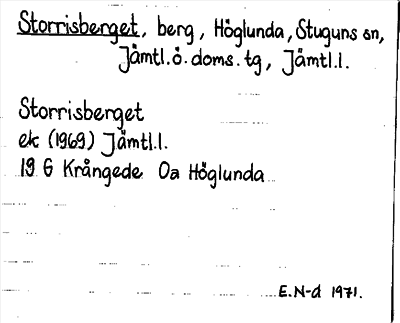 Storrisberget, berg, Höglunda, Stuguns sn,
Jämtl.ö.doms.tg, Jämtl.l.
Storrisberget
ek (1969) Jämtl.l.
19 G Krångede 0a Höglunda
E.N-d 1971.